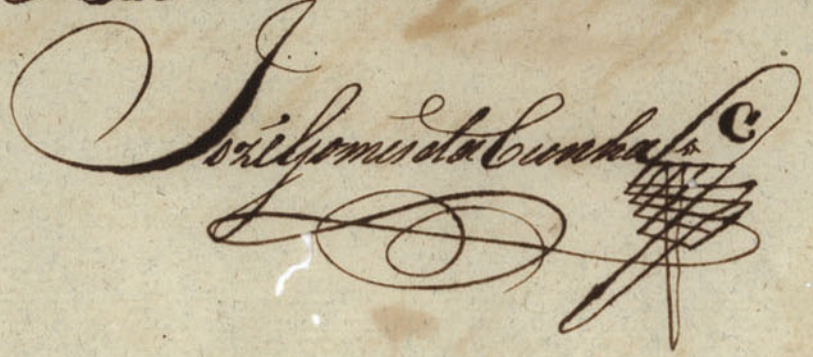 José Gomes da Cunha C